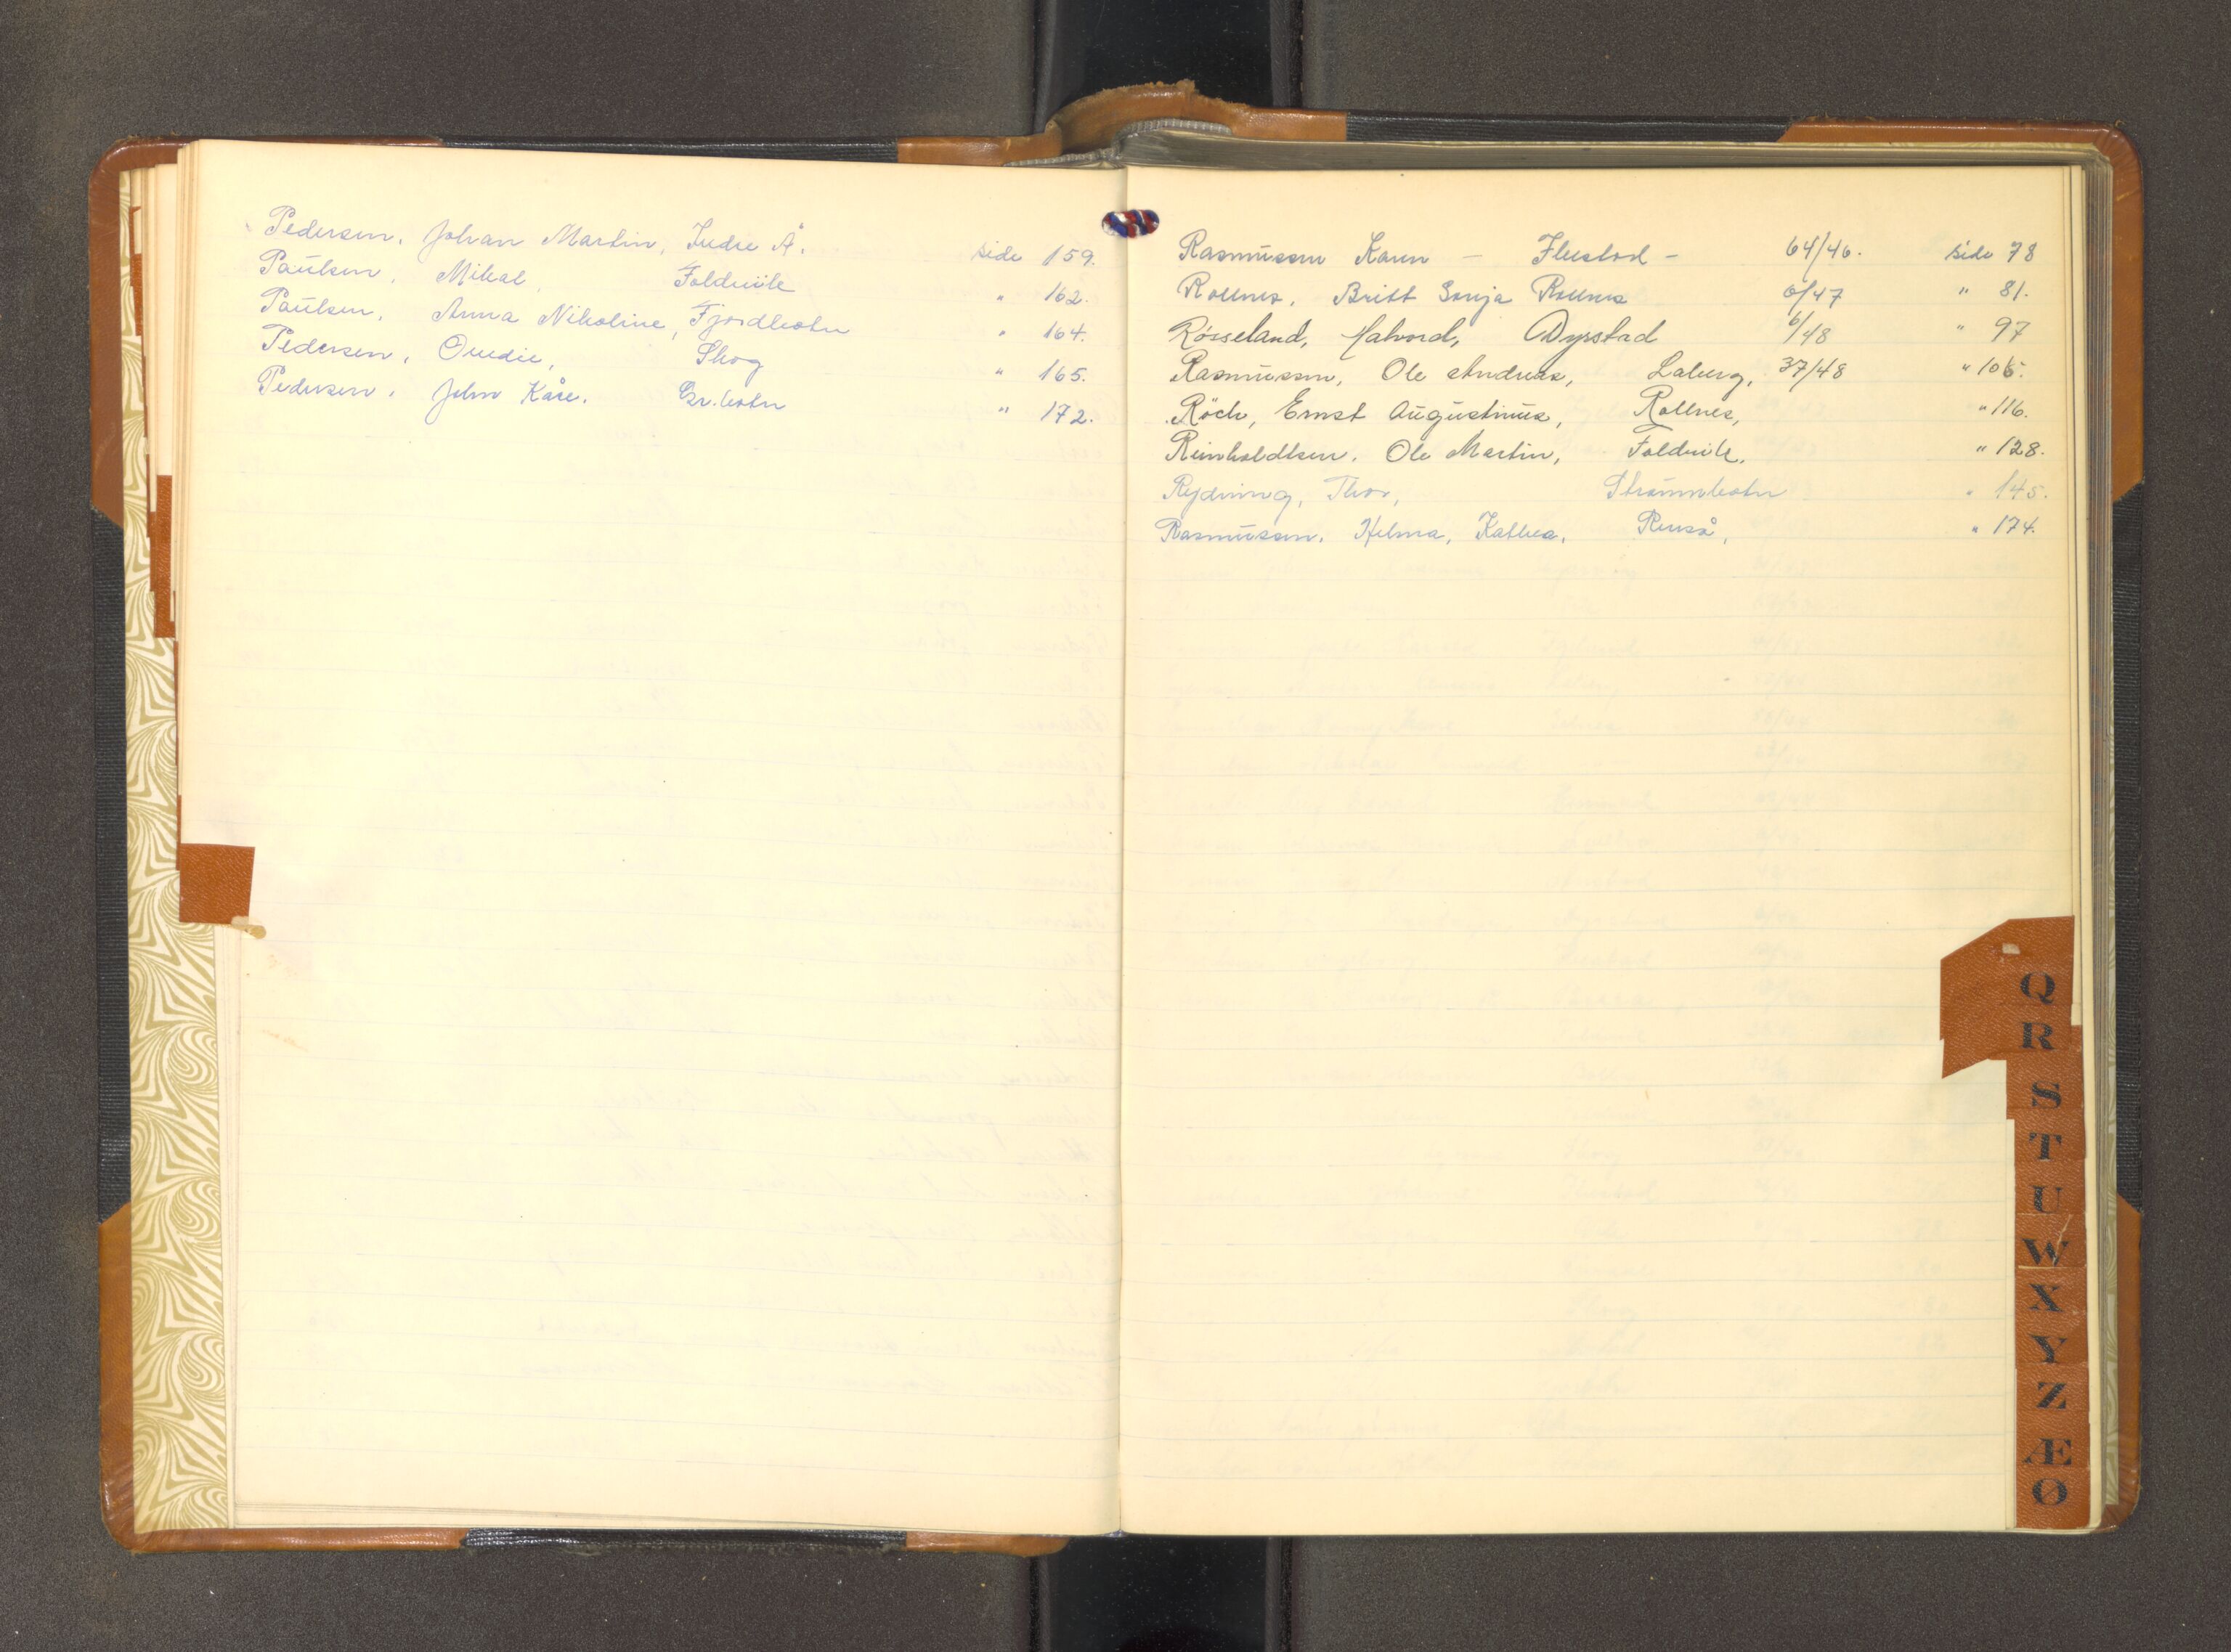 Pedersen, Johan Martin, Indre Å. side 159.
Paulsen, Mikal, Foldvik " 162.
Paulsen, Anna Nikoline, Fjordbotn " 164.
Pedersen, Ovedie, Skog " 165.
Pedersen, John Kåre. Gr.botn " 172.
Rasmussen Karen - Ibestad - 64/46. side 78
Rollnes, Britt Sonja Rollnes 6/47 " 81.
Røsseland, Halvord, Dyrstad 6/48 " 97
Rasmussen, Ole Andreas, Laberg, 37/48 " 106.
Röch, Ernst Augustinus, Rollnes, " 116.
Reinholdtsen, Ole Martin, Foldvik. " 128.
Rydning, Thor, Straumbotn " 145.
Rasmussen, Helma, Kathea, Renså, " 174.
Q
R
S
T
U
W
X
Y
Z
Æ
Ø